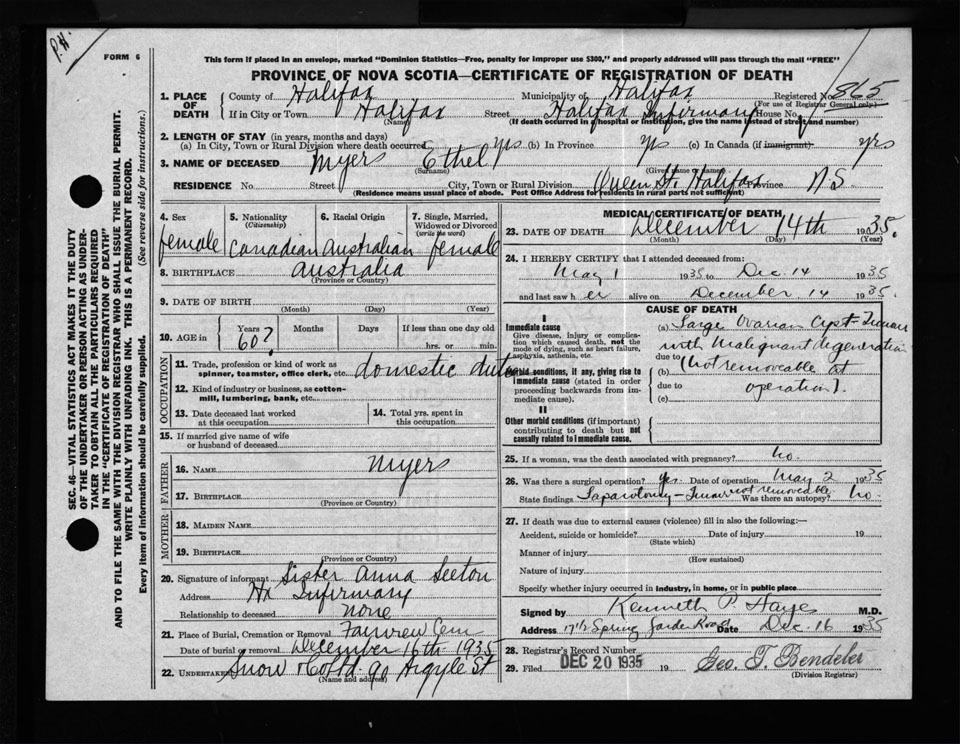 P.H.
FORM 6
This form if placed in an envelope, marked "Dominion Statistics—Free, penalty for improper use $300," and properly addressed will pass through the mail "FREE"
PROVINCE OF NOVA SCOTIA—CERTIFICATE OF REGISTRATION OF DEATH
1. PLACE OF DEATH County of Halifax Municipality of Halifax Registered No. 865
(For use of Registrar General only)
If in City or Town Halifax Street Halifax Infirmary House No.
(Name) (If death occurred in a hospital or institution, give the name instead of street and number)
2. LENGTH OF STAY (in years, months and days)
(a) In City, Town or Rural Division where death occurred yrs (b) In Province yrs (c) In Canada (if immigrant) yrs
3. NAME OF DECEASED Myers Ethel
(Surname) (Given name or names)
RESIDENCE No. Street City, Town or Rural Division Queen St. Halifax Province N S
(Residence means usual place of abode. Post Office Address for residents in rural parts not sufficient)
4. Sex 5. Nationality (Citizenship) 6. Racial Origin 7. Single, Married, Widowed or Divorced (write the word)
female Canadian Australian female
8. BIRTHPLACE Australia
(Province or Country)
9. DATE OF BIRTH
(Month) (Day) (Year)
10. AGE in Years Months Days If less than one day
60? hrs. or min.
OCCUPATION
11. Trade, profession or kind of work as spinner, teamster, office clerk, etc. domestic duties
12. Kind of industry or business, as cotton-mill, lumbering, bank, etc.
13. Date deceased last worked at this occupation 14. Total yrs. spent in this occupation
15. If married give name of wife or husband of deceased
FATHER
16. NAME Myers
17. BIRTHPLACE
(Province or Country)
MOTHER
18. MAIDEN NAME
19. BIRTHPLACE
(Province or Country)
20. Signature of informant Sister Anna Seeton
Address Hx Infirmary
Relationship to deceased none
21. Place of Burial, Cremation or Removal Fairview Cem
Date of burial or removal December 16th 1935
22. UNDERTAKER Snow & Co Ltd 90 Argyle St
(Name and address)
MEDICAL CERTIFICATE OF DEATH
23. DATE OF DEATH December 14th 1935.
(Month) (Day) (Year)
24. I HEREBY CERTIFY that I attended deceased from:
May 1 1935 to Dec. 14 1935
and last saw h er alive on December 14 1935.
CAUSE OF DEATH
I
Immediate cause
Give disease, injury or complication which caused death, not the mode of dying, such as heart failure, asphyxia, asthenia, etc.
(a) Large Ovarian Cyst-Tumor
with Malignant degeneration
due to
(b) (not removeable at
due to operation).
(c)
Morbid conditions, if any, giving rise to immediate cause (stated in order proceeding backwards from immediate cause).
II
Other morbid conditions (if important) contributing to death but not causally related to immediate cause.
25. If a woman, was the death associated with pregnancy? no.
26. Was there a surgical operation? Yes. Date of operation May 2 1935
State findings Laparotomy - Tumor not removeable Was there an autopsy? No.
27. If death was due to external causes (violence) fill in also the following:—
Accident, suicide or homicide? Date of injury 19
(State which)
Manner of injury
(How sustained)
Nature of injury
Specify whether injury occurred in industry, in home, or in public place
Signed by Kenneth P. Haye M.D.
Address 17½ Spring Garden Road Date Dec. 16 1935
28. Registrar's Record Number
29. Filed DEC 20 1935 19 Geo. T. Bendeler
(Division Registrar)
SEC. 46—VITAL STATISTICS ACT MAKES IT THE DUTY
OF THE UNDERTAKER OR PERSON ACTING AS UNDER-
TAKER TO OBTAIN ALL THE PARTICULARS REQUIRED
IN THE "CERTIFICATE OF REGISTRATION OF DEATH"
AND TO FILE THE SAME WITH THE DIVISION REGISTRAR WHO SHALL ISSUE THE BURIAL PERMIT.
WRITE PLAINLY WITH UNFADING INK. THIS IS A PERMANENT RECORD.
Every item of information should be carefully supplied. (See reverse side for instructions.)